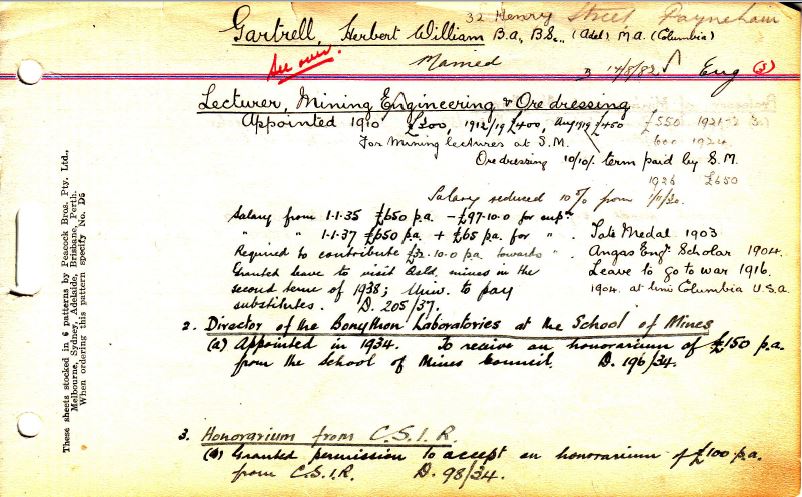 32 Henry Street Payneham
Gartrell, Herbert William B.A., B.Sc., (Adel) M.A. (Columbia)
See over.
Married
B 14/8/82
Eng (3)
Lecturer, Mining Engineering & Ore dressing
Appointed 1910 £300, 1912/19 £400, Aug 1919 £450 £550 1921-2
600 1924
For Mining lectures at S.M.
Ore dressing 10/10/- term paid by S.M.
1926 £650
Salary reduced 10% from 1/11/30.
Salary from 1.1.35 £650 p.a. - £97.10.0 for supn
" " 1.1.37 £650 p.a. + £65 p.a. for " .
Required to contribute £32.10.0 p.a. towards " .
Granted leave to visit mines in the
second term of 1938; Univ. to pay
substitutes. D. 205/37.
Tate Medal 1903
Angas Engr Scholar 1904.
Leave to go to war 1916.
1904. at Columbia U.S.A.
2. Director of the Bonython Laboratories at the School of Mines
(a) Appointed in 1934. To receive an honorarium of £150 p.a.
from the School of Mines Council. D. 196/34.
3. Honorarium from C.S.I.R.
(a) Granted permission to accept an honorarium of £100 p.a.
from C.S.I.R. D. 98/34.
These sheets stocked in 6 patterns by Peacock Bros. Pty. Ltd.,
Melbourne, Sydney, Adelaide, Brisbane, Perth.
When ordering this pattern specify No. D5